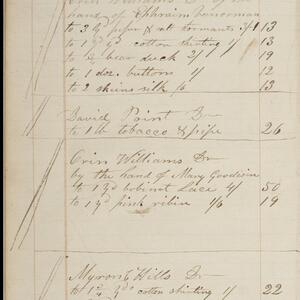 Orin Williams Dr by the
hand of Ephraim
to 3 yd pipes & 13
to 1 yd cotton shirting 1/ 13
to ½ bear duck 2/ 19
to 1 doz. buttons 1/ 12
to 2 skeins silk 6 13
David Point Dr
to 1 lb tobacco & pipe 26
Orin Williams Dr
by the hand of Mary Goodwin
to 1 yd bobinet Lace 4/ 50
to 1 yd pink ribin 1/6 19
Myron C Hills Dr
to 1¾ yds cotton shirting 1/ 22